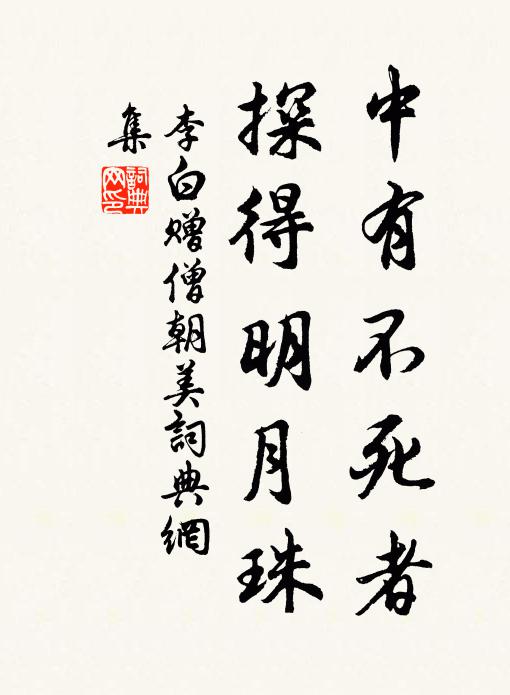 中有不死者
探得明月珠
李白赠僧朝美詞典網
集
詞典
网印